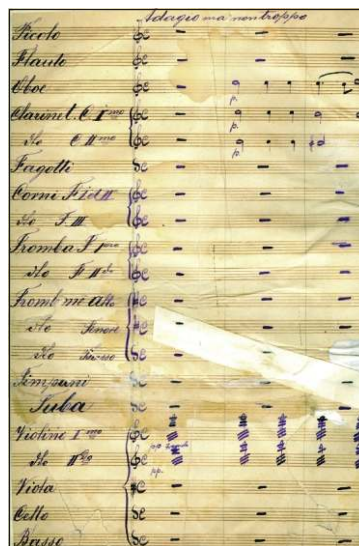 Adagio ma non troppo
Picolo
Flauto
Oboe
Clarinet. C. I mo
dto C II mo
Fagotti
Corni F I & II
dto F. III
Tromba F I mo
dto F II do
Tromb. ne Alto
dto Tenore
dto Basso
Timpani
Tuba
Violino I mo
dto II do
Viola
Cello
Basso
p.
p.
pp.